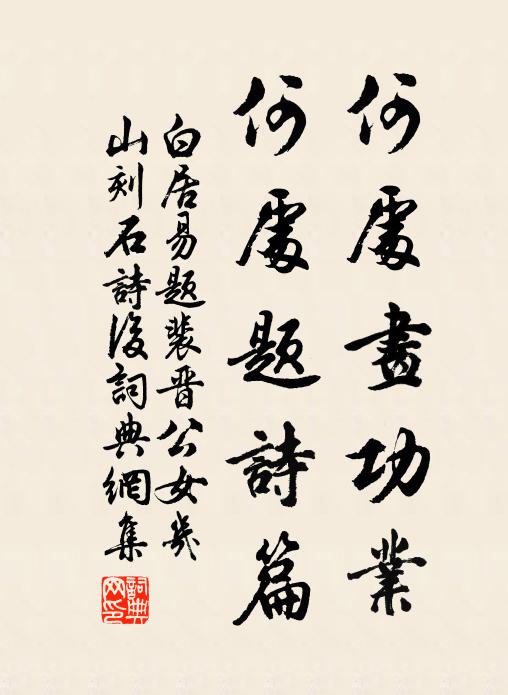 何處畫功業
何處題詩篇
白居易題裴晉公女几
山刻石詩後詞典網集
詞典網印